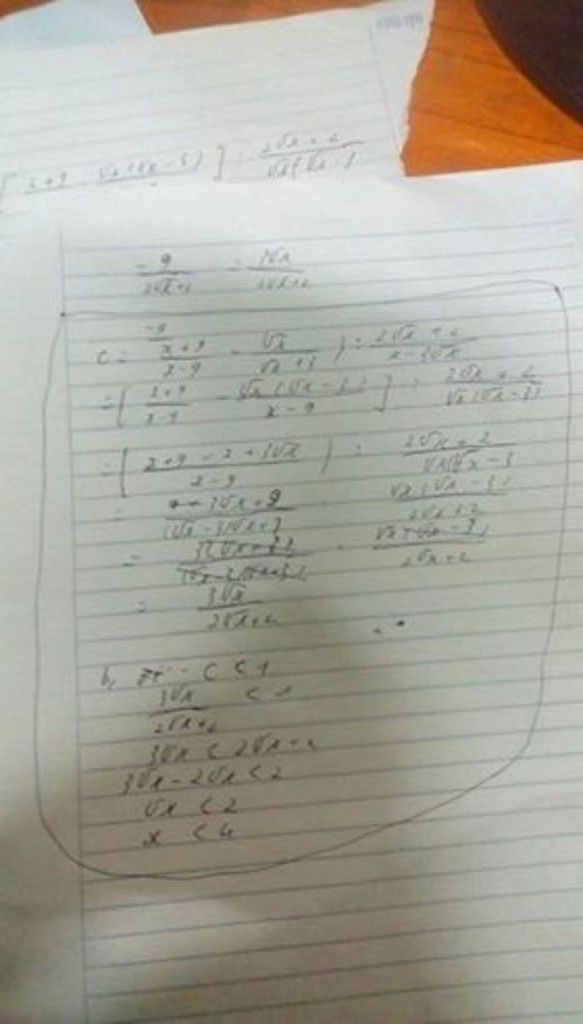 [ x+9 - √x(√x - 3) ] : 2√x + 2 / √x(√x - 3
= 9 / 2√x+2 = 3√x / 2√x+2
C = x+9 / x-9 - √x / √x+3 ) : 2√x + 2 / x-3√x
= [ x+9 / x-9 - √x(√x-3) / x-9 ] : 2√x+2 / √x(√x-3)
= ( x+9-x+3√x / x-9 ) : 2√x+2 / √x(√x-3
= 3√x+9 / (√x-3)(√x+3 . √x(√x-3) / 2√x+2
= 3(√x+3) / (√x-3)(√x+3) . √x(√x-3) / 2√x+2
= 3√x / 2√x+2
b, C < 1
3√x / 2√x+2 < 1
3√x < 2√x+2
3√x-2√x < 2
√x < 2
x < 4